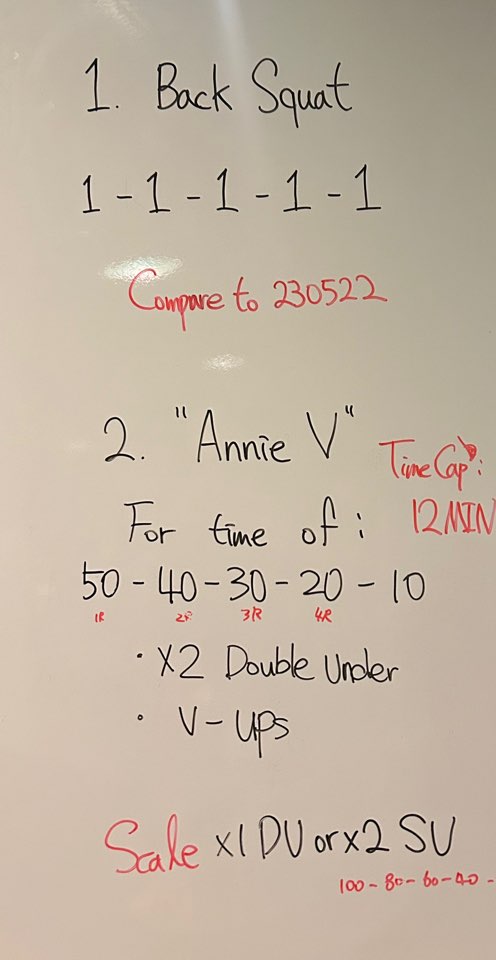 1. Back Squat
1 - 1 - 1 - 1 - 1
Compare to 230522
2. "Annie V"
Time Cap:
12 MIN
For time of :
50 - 40 - 30 - 20 - 10
1R 2R 3R 4R
· X2 Double Under
· V-UPS
Scale x1 DU or x2 SU
100 - 80 - 60 - 40 -